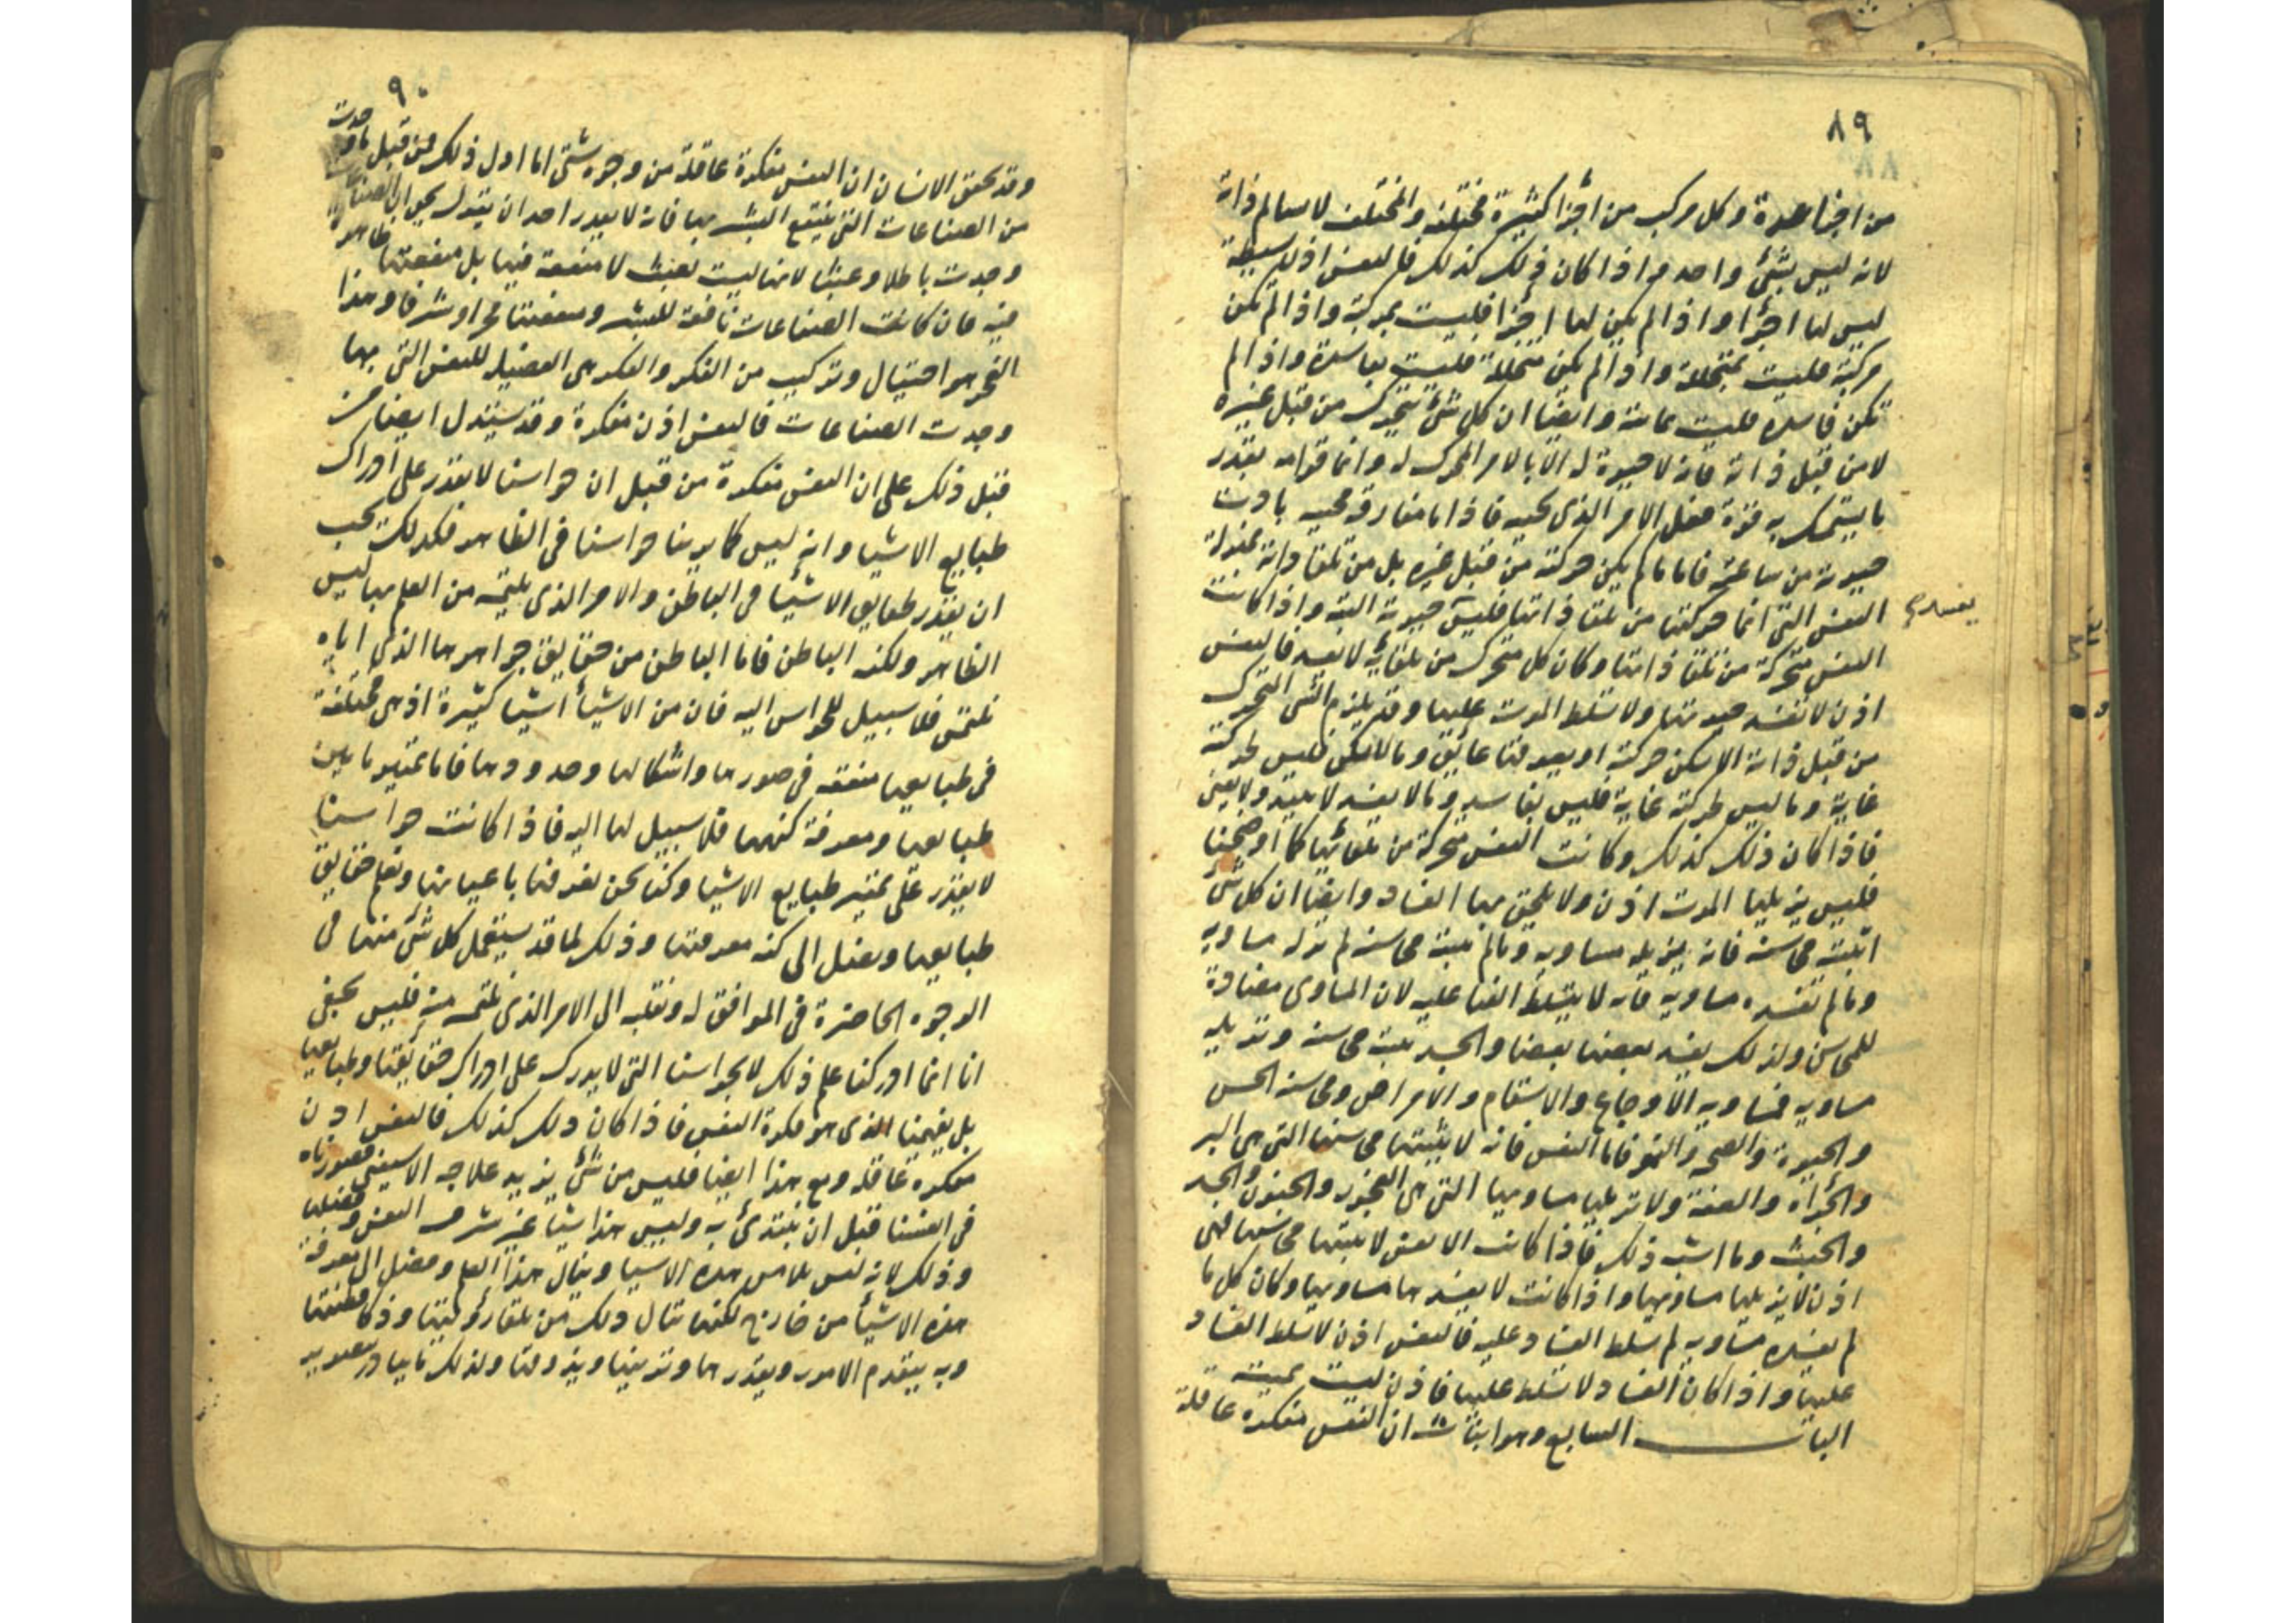 ٨٩
من اجزا عدة وكل مركب من أجزا كثيرة مختلفة والمختلف لا يسالم ذاته
لانه ليس بشئ واحد واذا كان ذلك كذلك فالنفس اذ لبسيطة
ليس لها اجزا واذا لم يكن لها اجزا فليست بمركبة واذا لم تكن
مركبة فليست بمتحللة واذا لم يكن متحللة فليست بفاسدة واذا لم
تكن فاسدة فليست بمائتة وايضا ان كل شئ يتحرك من قبل غيره
لا من قبل ذاته فانه لا حيوة له الا بالامر المحرك له وانما قوامه بقدر
ما يستمسك به قوة فعل الامر الذى يحييه فاذا ما مفارقه محييه بادت
حيوته من ساعته فاما ما لم يكن حركته من قبل غيره بل من تلقا ذاته بمنزلة
النفس التى انما حركتها من تلقا ذاتها فليس حيوته البتة واذا كانت
يفسد
النفس متحركة من تلقا ذاتها وكان كل متحرك من تلقايه لا يفسد فالنفس
اذن لا تفسد حيوتها ولا تسلط الموت عليها وقد يلزم الشئ التحرك
من قبل ذاته الا يسكن حركته او يعوقها عائق وما لا يسكن فليس لحركته
غاية وما ليس لحركته غاية فليس بفاسد وما لا يفسد لا يبيد ولا يفنى
فاذا كان ذلك كذلك وكانت النفس متحركة من تلقائها كما اوضحنا
فليس يزيلها الموت اذن ولا يلحق بها الفساد وايضا ان كل شئ
اثبته محاسنه فانه يزيله مساويه وما لم يثبته محاسنه لم تزله مساويه
وما لم تفسده مساويه فانه لا يتسلط الفنا عليه لان المساوى مضادة
للمحاسن ولذلك يفسد بعضها بعضا والجسد يثبته محاسنه وتزيله
مساويه فمساويه الاوجاع والاسقام والامراض ومحاسنه الحس
والحيوة والصحة والنمو فاما النفس فانه لا يثبتها محاسنها التى هى البر
والجرأه والعفة ولا تزيلها مساويها التى هى الفجور والجنون والجبد
والخبث وما اشبه ذلك فاذا كانت الانفس لا يثبتها محاسنها فهى
اذن لا يزيلها مساويها واذا كانت لا يفسدها مساويها وكان كل ما
لم يفسده مساويه لم يسلط الفساد عليه فالنفس اذن لا تسلط الفساد
عليها واذا كان الفساد لا تسلط عليها فاذن ليست بميتة
الباب السابع وهو اثبات ان النفس مفكرة عاقلة
٩٠
وقد يحقق الانسان ان النفس مفكرة عاقلة من وجوه شتى اما اول ذلك فمن قبل ما وجدت
من الصناعات التى ينتفع البشر بها فانه لا يقدر احد ان يقول بحق ان الصناعات
وجدت باطلا وعبثا لانها ليست بعبث لا منفعة فيها بل منفعتها ظاهرة
فيه فان كانت الصناعات نافعة للبشر ومنفعتها فخرا وشرفا وهذا
النحو هو احتيال وتركيب من الفكر والفكر هى الفضيلة للنفس التى بها
وجدت الصناعات فالنفس اذن مفكرة وقد يستدل ايضا من
قبل ذلك على ان النفس مفكرة من قبل ان حواسنا لا يقدر على ادراك
طبايع الاشيا وانه ليس كما يرينا حواسنا فى الظاهر فكذلك يجب
ان يقدر حقايق الاشيا فى الباطن والامر الذى يلتمس من العلم بها ليس
الظاهر ولكنه الباطن فاما الباطن من حقايق جواهرها الذى اياه
نلتمس فلا سبيل للحواس اليه فان من الاشيأ اشيا كثيرة اذ هى مختلفة
فى طبايعها متفقة فى صورها واشكالها وحدودها فاما تمييز ما بين
طبايعها ومعرفة كنهها فلا سبيل لها اليه فاذا كانت حواسنا
لا يقدر على تمييز طبايع الاشيا وكنا نحن نعرفها باعيانها ونعلم حقايق
طبايعها ونصل الى كنه معرفتها وذلك لما قد يستعمل كل شئ منها فى
الوجوه الحاضرة فى الموافق له ونقلبه الى الامر الذى نلتمسه منه فليس يخفى
انا انما ادركنا علم ذلك لا بحواسنا التى لا يدرك على ادراك حقائقها وطبايعها
بل بفهمنا الذى هو فكرة النفس فاذا كان ذلك كذلك فالنفس اذن
مفكرة عاقلة ومع هذا ايضا فليس من شئ يزيد علاجه الا سبقى تصورناه
فى انفسنا قبل ان نبتدئ به وليس هذا شيا غير شرف النفس وفضلها
وذلك لانه ليس بلامس هذه الاشيا وينال هذا العلم ومصل الى معرفة
هذه الاشيأ من خارج لكنها تنال ذلك من تلقا رؤيتها وذكا فطنتها
وبه يتقدم الامور ويقدرها وتزينها